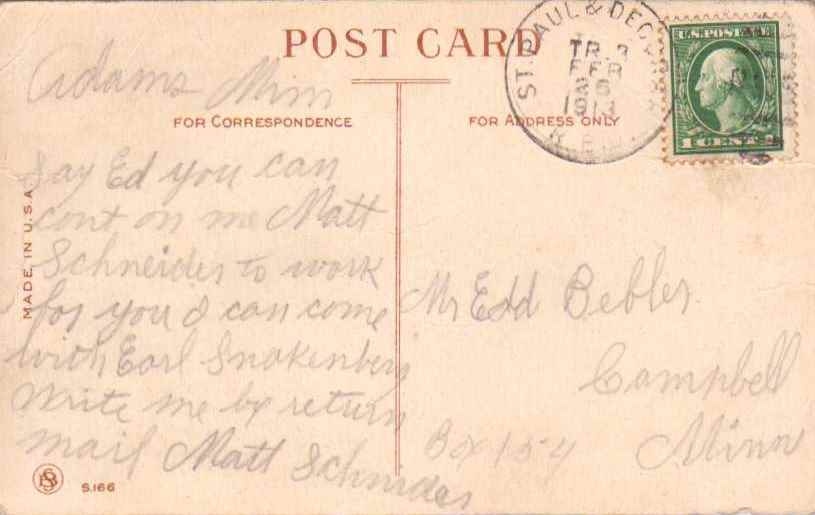 POST CARD
ST. PAUL & DECORAH
TR. 3
FEB
1913
R.P.O.
U.S. POSTAGE
1 CENT 1
Adams Minn
FOR CORRESPONDENCE
FOR ADDRESS ONLY
Say Ed you can
cont on me Matt
Schneider to work
for you I can come
with Earl Snakenberg
write me by return
mail Matt Schnider
Mr Edd Bebler
Campbell
Box 154 Minn
MADE IN U.S.A.
S.166